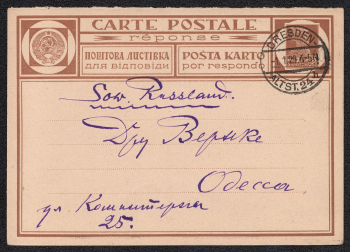 CARTE POSTALE
réponse
ПОШТОВА ЛИСТІВКА
для відповіди
POŜTA KARTO
por respondo
DRESDEN
ALTST. 24
Sow. Russland.
Д-ру Верьке
Одесса
ул. Коминтерна
25.